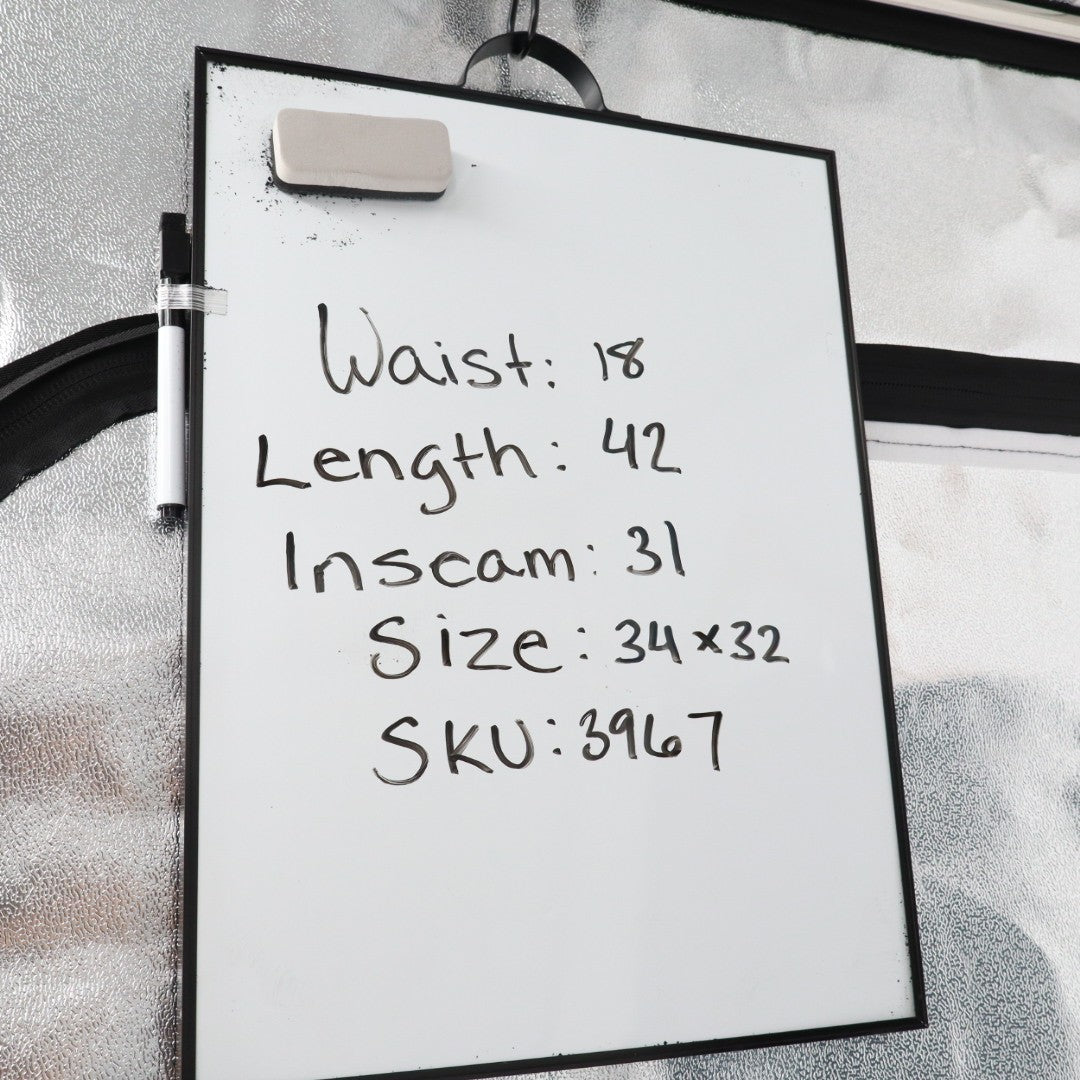 Waist: 18
Length: 42
Inseam: 31
Size: 34x32
SKU: 3967